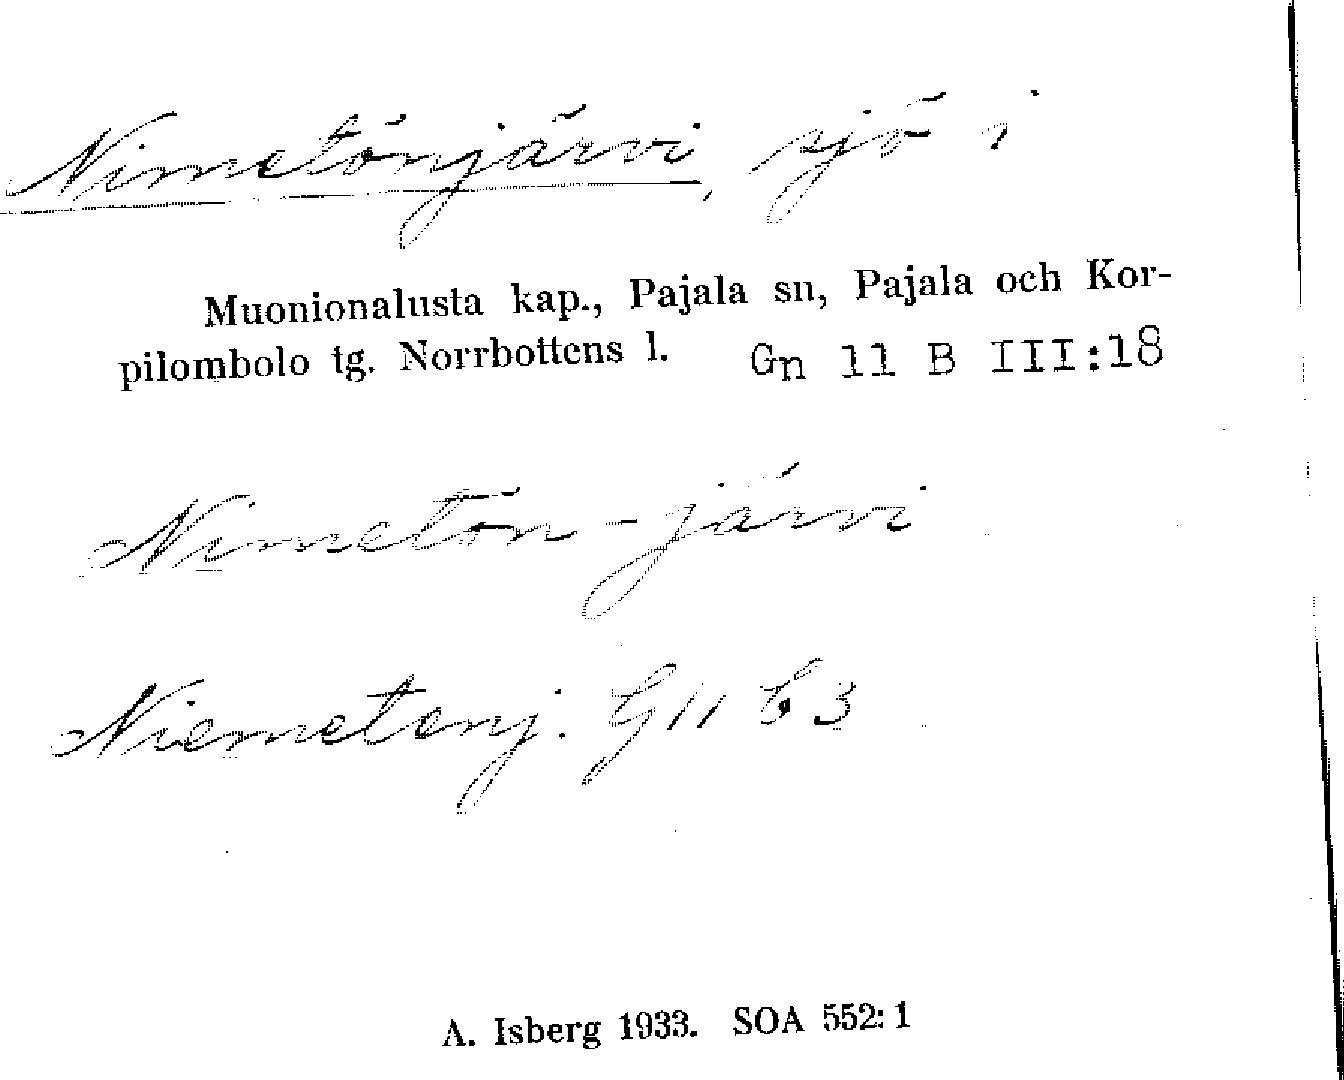 Nimetönjärvi, sjö i
Muonionalusta kap., Pajala sn, Pajala och Kor-
pilombolo tg. Norrbottens l. Gn 11 B III:18
Nimetön-järvi
Niemetenj. G 11 b 3
A. Isberg 1933. SOA 552:1